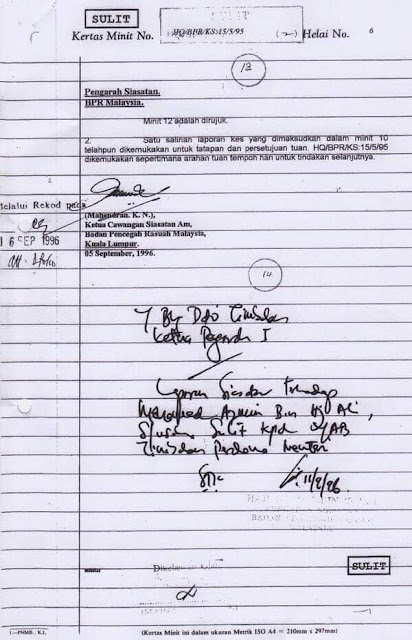 SULIT
SULIT
Kertas Minit No. HQ/BPR/KS:15/5/95 (2) Helai No. 6
13
Pengarah Siasatan.
BPR Malaysia.
Minit 12 adalah dirujuk.
2. Satu salinan laporan kes yang dimaksudkan dalam minit 10
telahpun dikemukakan untuk tatapan dan persetujuan tuan. HQ/BPR/KS:15/5/95
dikemukakan sepertimana arahan tuan tempoh hari untuk tindakan selanjutnya.
Melalui Rekod pada
16 SEP 1996
(Mahendran. K. N.),
Ketua Cawangan Siasatan Am,
Badan Pencegah Rasuah Malaysia,
Kuala Lumpur.
05 September, 1996.
14
Y Bhg Dato Timbalan
Ketua Pengarah I
Laporan Siasatan Terhadap
Mohamed Azmin Bin Hj Ali,
Sulit
Timbalan Perdana Menteri
SULIT
(Kertas Minit ini dalam ukuran Metrik ISO A4 = 210mm x 297mm)